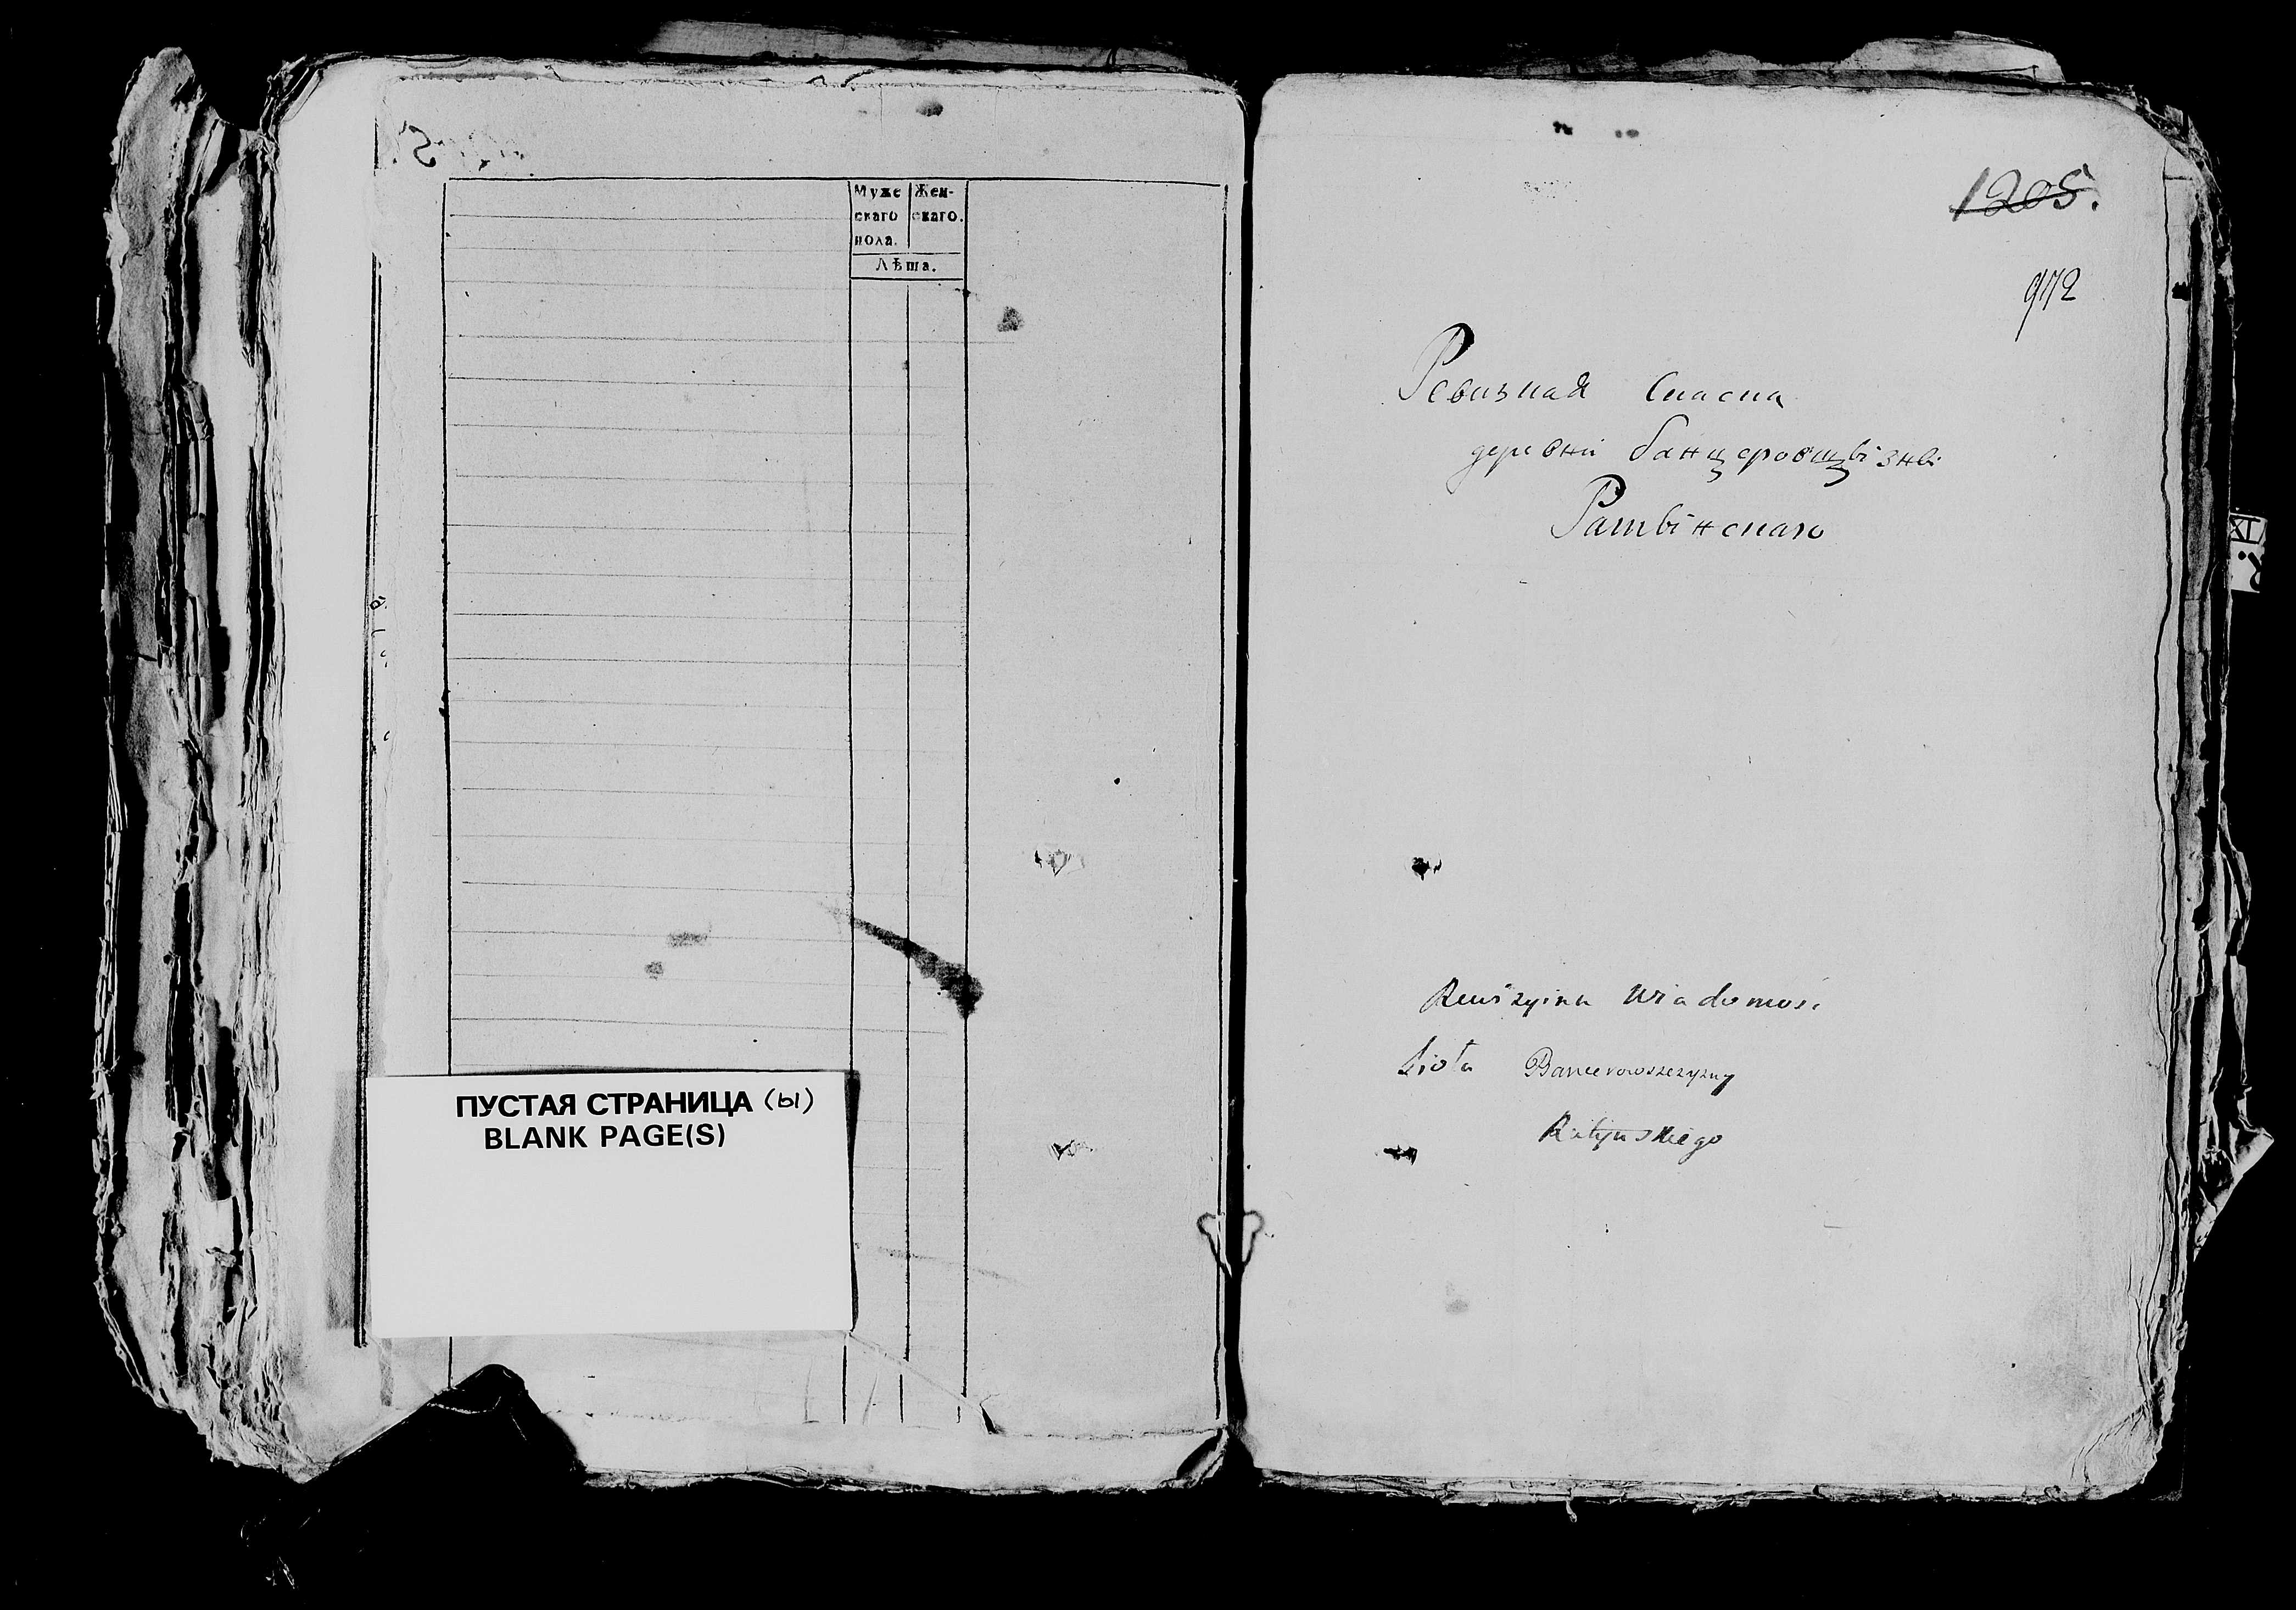 Муже Жен-
скаго скаго.
пола.
Лѣта.
ПУСТАЯ СТРАНИЦА (ы)
BLANK PAGE(S)
1205.
972
Ревизная Сказка
деревни банцеровщізны
Ратінскаго
Rewizyina Wiadomość
Sioła Bancerowszczyzny
Ratyńskiego